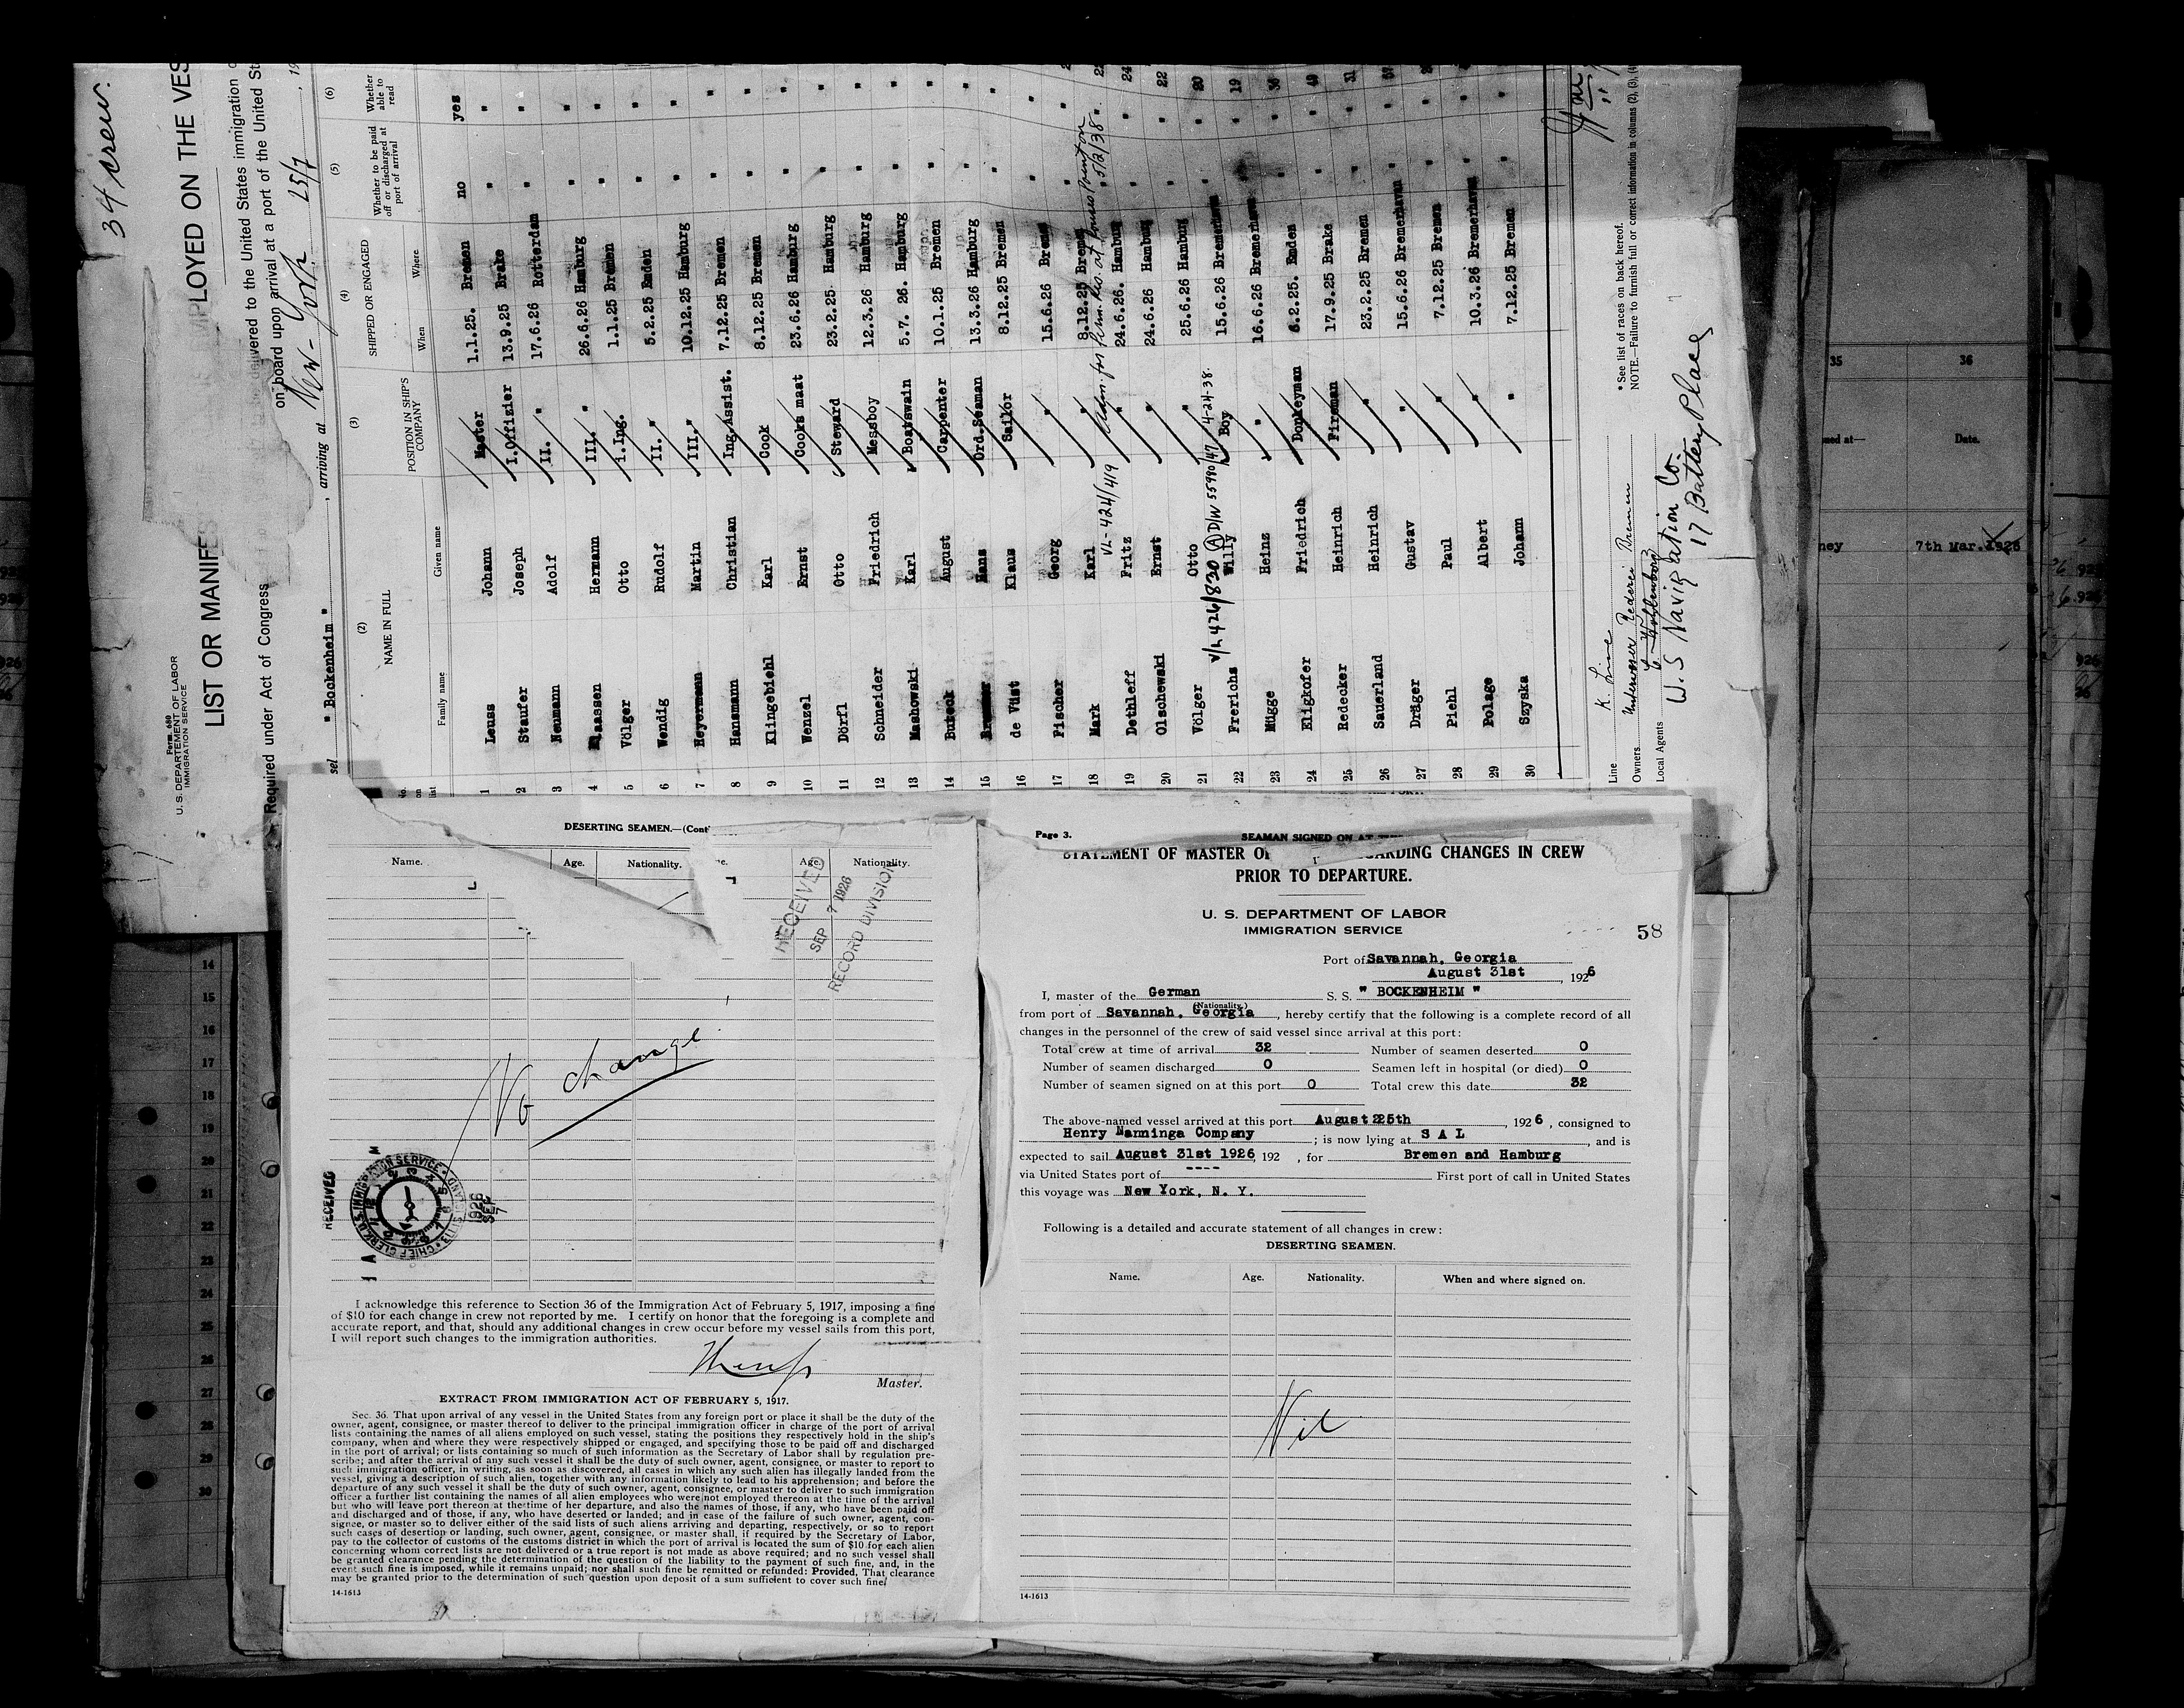 34 crew.
Form 680
U. S. DEPARTEMENT OF LABOR
IMMIGRATION SERVICE
LIST OR MANIFES PLOYED ON THE VES
Required under Act of Congress delivered to the United States immigration
on board upon arrival at a port of the United St
sel " Bockenheim " , arriving at New-York 25/7 , 19
(2) (3) (4) (5) (6)
No. on list
NAME IN FULL
POSITION IN SHIP'S COMPANY
SHIPPED OR ENGAGED
Whether to be paid off or discharged at port of arrival
Whether able to read
Family name Given name When Where
1 Leuss Johann Master 1.1.25. Bremen no yes
2 Staufer Joseph I.Offizier 13.9.25 Brake " "
3 Neumann Adolf II. " 17.6.26 Rotterdam " "
4 Klaassen Hermann III. " 26.6.26 Hamburg " "
5 Völger Otto i.Ing. 1.1.25 Bremen " "
6 Wendig Rudolf II. " 5.2.25 Emden " "
7 Heyermann Martin III. " 10.12.25 Hamburg " "
8 Hansmann Christian Ing.Assist. 7.12.25 Bremen " "
9 Klingebiehl Karl Cook 8.12.25 Bremen " "
10 Wenzel Ernst Cooks maat 23.6.26 Hamburg " "
11 Dörfl Otto Steward 23.2.25. Hamburg " "
12 Schneider Friedrich Messboy 12.3.26 Hamburg " "
13 Mashowski Karl Boatswain 5.7. 26. Hamburg " "
14 Buteck August Carpenter 10.1.25 Bremen " "
15 Hans Ord.Seaman 13.3.26 Hamburg " "
16 de Vüst Klaus Sailor 8.12.25 Bremen " "
17 Fischer Georg " 15.6.26 Bremen " "
18 Mark Karl " 8.12.25 Bremen " "
VL-424/419 Adm. for Perm. Res. at 5/2/38
19 Dethleff Fritz " 24.6.26. Hamburg " " 24
20 Olschewski Ernst " 24.6.26 Hamburg " " 22
21 Völger Otto " 25.6.26 Hamburg " " 20
V/L 426/830 A D/W 55990/47 4-24-38.
22 Frerichs Willy Boy 15.6.26 Bremerhaven " " 19
23 Mügge Heinz " 16.6.26 Bremerhaven " " 36
24 Eligkofer Friedrich Donkeyman 6.2.25. Emden " " 49
25 Redecker Heinrich Fireman 17.9.25 Brake " " 31
26 Sauerland Heinrich " 23.2.25 Bremen " "
27 Dräger Gustav " 15.6.26 Bremerhaven " "
28 Piehl Paul " 7.12.25 Bremen " "
29 Polage Albert " 10.3.26 Bremerhaven " "
30 Szyska Johann " 7.12.25 Bremen " "
Line K. Line
* See list of races on back hereof.
Owners Unterweser Rederei Bremen
NOTE.—Failure to furnish full or correct information in columns (2), (3), (4
Local Agents
U. S Navigation Co.
17 Battery Place
DESERTING SEAMEN.—(Cont
Name. Age. Nationality. Age. Nationality.
RECEIVED
SEP 7 1926
RECORD DIVISION
No change
RECEIVED
U.S. IMMIGRATION SERVICE
CHIEF CLERK
1926 SEP 7
I acknowledge this reference to Section 36 of the Immigration Act of February 5, 1917, imposing a fine
of $10 for each change in crew not reported by me. I certify on honor that the foregoing is a complete and
accurate report, and that, should any additional changes in crew occur before my vessel sails from this port,
I will report such changes to the immigration authorities.
Master.
EXTRACT FROM IMMIGRATION ACT OF FEBRUARY 5, 1917.
Sec. 36. That upon arrival of any vessel in the United States from any foreign port or place it shall be the duty of the
owner, agent, consignee, or master thereof to deliver to the principal immigration officer in charge of the port of arrival
lists containing the names of all aliens employed on such vessel, stating the positions they respectively hold in the ship's
company, when and where they were respectively shipped or engaged, and specifying those to be paid off and discharged
in the port of arrival; or lists containing so much of such information as the Secretary of Labor shall by regulation pre-
scribe; and after the arrival of any such vessel it shall be the duty of such owner, agent, consignee, or master to report to
such immigration officer, in writing, as soon as discovered, all cases in which any such alien has illegally landed from the
vessel, giving a description of such alien, together with any information likely to lead to his apprehension; and before the
departure of any such vessel it shall be the duty of such owner, agent, consignee, or master to deliver to such immigration
officer a further list containing the names of all alien employees who were not employed thereon at the time of the arrival
but who will leave port thereon at the time of her departure, and also the names of those, if any, who have been paid off
and discharged and of those, if any, who have deserted or landed; and in case of the failure of such owner, agent, con-
signee, or master so to deliver either of the said lists of such aliens arriving and departing, respectively, or so to report
such cases of desertion or landing, such owner, agent, consignee, or master shall, if required by the Secretary of Labor,
pay to the collector of customs of the customs district in which the port of arrival is located the sum of $10 for each alien
concerning whom correct lists are not delivered or a true report is not made as above required; and no such vessel shall
be granted clearance pending the determination of the question of the liability to the payment of such fine, and, in the
event such fine is imposed, while it remains unpaid; nor shall such fine be remitted or refunded: Provided, That clearance
may be granted prior to the determination of such question upon deposit of a sum sufficient to cover such fine
14-1613
Page 3. SEAMAN SIGNED ON AT
STATEMENT OF MASTER OF REGARDING CHANGES IN CREW
PRIOR TO DEPARTURE.
U. S. DEPARTMENT OF LABOR
IMMIGRATION SERVICE
58
Port of Savannah, Georgia
August 31st , 1926
I, master of the German S. S. " BOCKENHEIM "
(Nationality.)
from port of Savannah, Georgia , hereby certify that the following is a complete record of all
changes in the personnel of the crew of said vessel since arrival at this port:
Total crew at time of arrival 32 Number of seamen deserted 0
Number of seamen discharged 0 Seamen left in hospital (or died) 0
Number of seamen signed on at this port 0 Total crew this date 32
The above-named vessel arrived at this port August 25th , 1926 , consigned to
Henry Nanninga Company ; is now lying at S A L , and is
expected to sail August 31st 1926 , 192 , for Bremen and Hamburg
via United States port of ---- First port of call in United States
this voyage was New York, N. Y.
Following is a detailed and accurate statement of all changes in crew:
DESERTING SEAMEN.
Name. Age. Nationality. When and where signed on.
Nil
14-1613
14
15
16
17
18
19
20
21
22
23
24
25
26
27
28
29
30
35 36
med at— Date.
ney 7th Mar. 1926